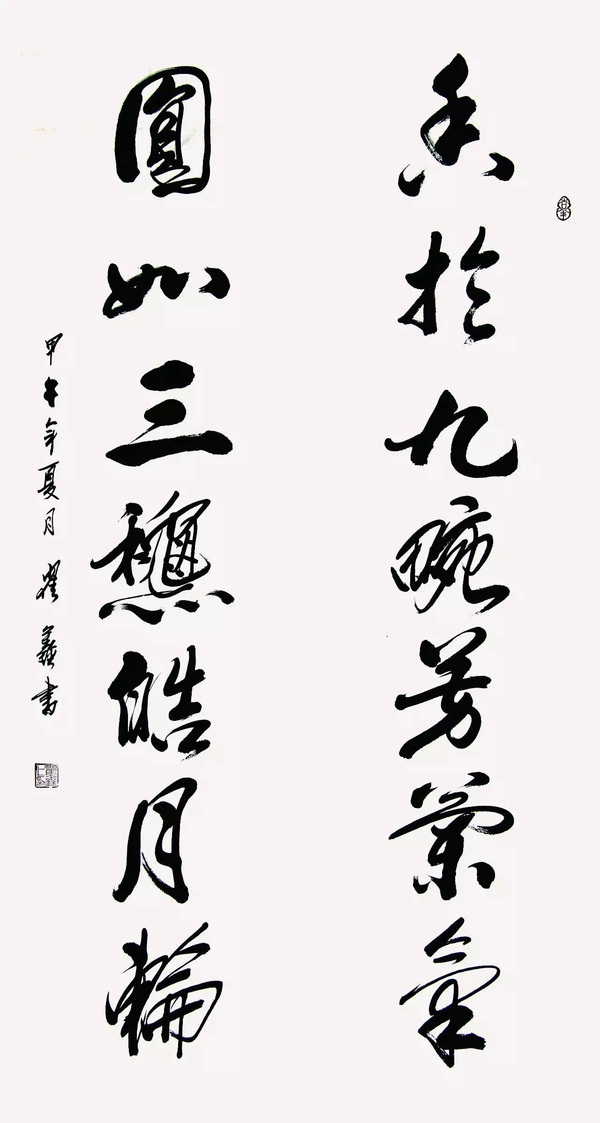 香於九畹芳蘭氣
圓如三龝皓月輪
甲午年夏月 翟 書